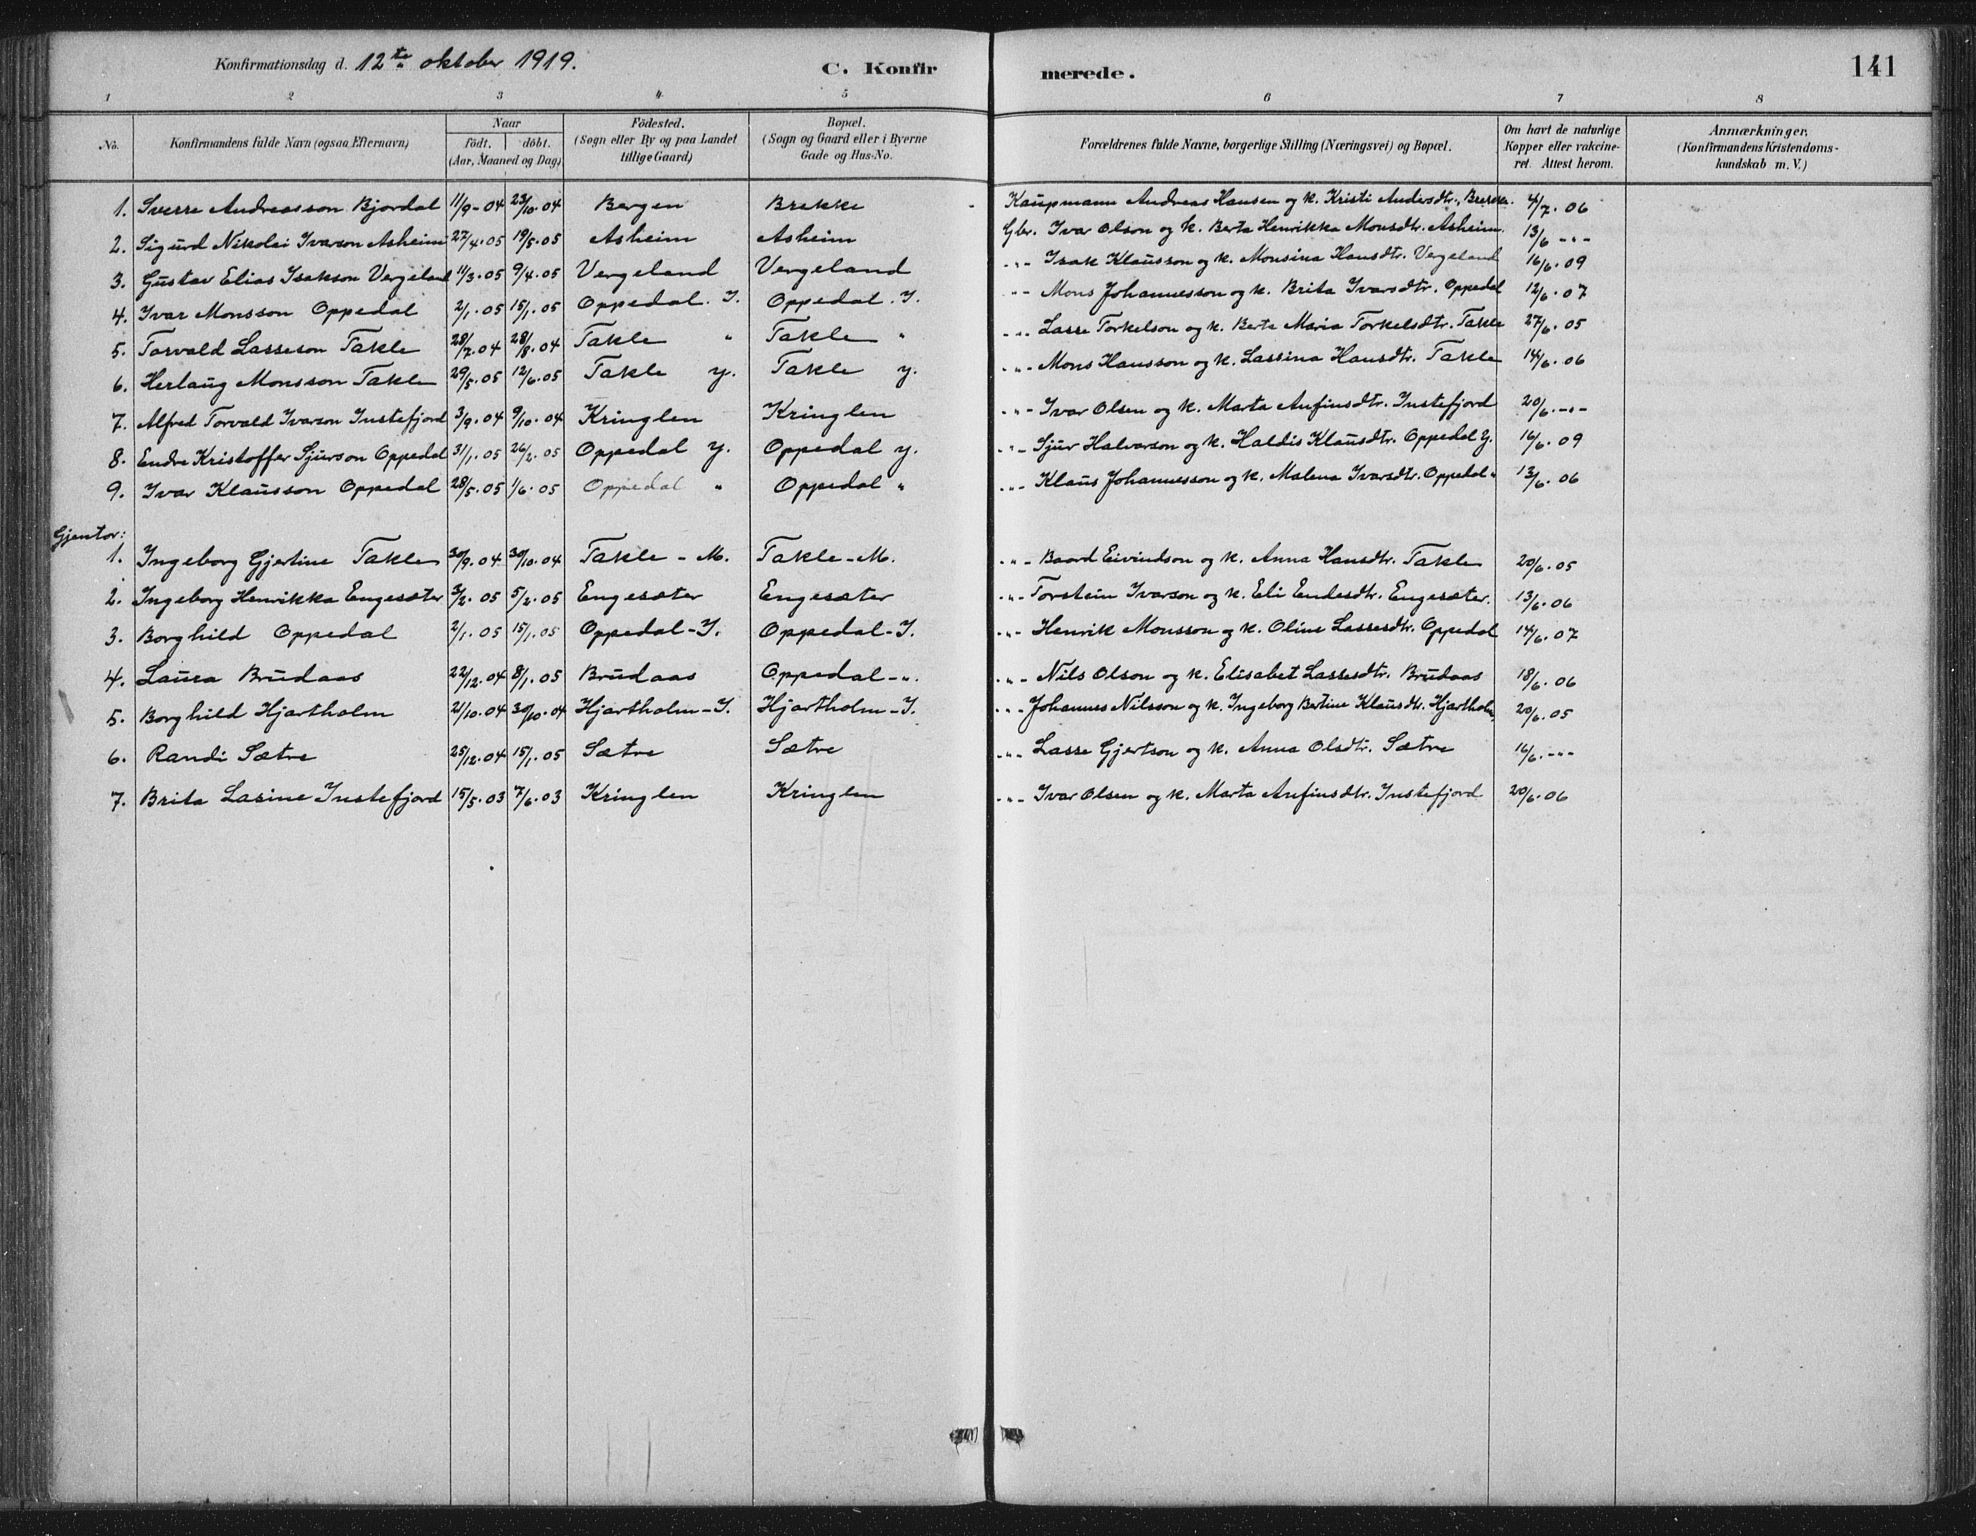 Konfirmationsdag d. 12te oktober 1919. C. Konfirmerede. 141
1 2 3 4 5 6 7 8
No. Konfirmandens fulde Navn (ogsaa Efternavn) Naar Fødested. Bopæl. Forældrenes fulde Navne, borgerlige Stilling (Næringsvei) og Bopæl. Om havt de naturlige Anmærkninger.
født. døbt. (Sogn eller By og paa Landet (Sogn og Gaard eller i Byerne Kopper eller vakcine- (Konfirmandens Kristendoms-
(Aar, Maaned og Dag) tillige Gaard) Gade og Hus-No. ret. Attest herom. kundskab m. V.)
1. Sverre Andreasson Bjordal 11/9-04 23/10.04 Bergen Brekke Kaupmann Andreas Hansen og k. Kristi Andersdtr., Brekke. 4/7.06
2. Sigurd Nikolai Ivarson Asheim 27/4.05 19/5.05 Asheim Asheim Gbr. Ivar Olson og k. Berta Henrikka Monsdtr. Asheim. 13/6 -"-
3. Gustav Elias Isakson Vergeland 11/3.05 9/4.05 Vergeland Vergeland -"- Isak Klausson og k. Monsina Hansdtr. Vergeland 16/6.09
4. Ivar Monsson Oppedal 2/1.05 15/1.05 Oppedal. I. Oppedal. I. -"- Mons Johannesson og k. Brita Ivarsdtr. Oppedal 12/6.07
5. Torvald Lasseson Takle 28/7.04 28/8.04 Takle " Takle " -"- Lasse Torkelson og k. Berta Maria Torkelsdtr. Takle 27/6.05
6. Herlaug Monsson Takle 29/5.05 12/6.05 Takle Y. Takle Y. -"- Mons Hansson og k. Lassina Hansdtr. Takle 14/6.06
7. Alfred Torvald Ivarson Instefjord 3/9.04 9/10.04 Kringlen Kringlen -"- Ivar Olsen og k. Marta Anfinsdtr. Instefjord 20/6.-"-
8. Endre Kristoffer Sjurson Oppedal 31/1.05 26/2.05 Oppedal Y. Oppedal Y. -"- Sjur Halvarson og k. Haldis Klausdtr. Oppedal Y. 16/6.09
9. Ivar Klausson Oppedal 28/5.05 1/6.05 Oppedal " Oppedal " -"- Klaus Johannesson og k. Malena Ivarsdtr. Oppedal " 13/6.06
Gjentor:
1. Ingeborg Gjertine Takle 30/9.04 30/10.04 Takle - M. Takle - M. -"- Baard Eivindson og k. Anna Hansdtr. Takle 20/6.05
2. Ingeborg Henrikka Engesæter 3/2.05 5/2.05 Engesæter Engesæter -"- Torstein Ivarson og k. Eli Endesdtr. Engesæter. 13/6.06
3. Borghild Oppedal 2/1.05 15/1.05 Oppedal-I. Oppedal-I. -"- Henrik Monsson og k. Oline Lassesdtr. Oppedal 14/6.07
4. Laura Brudaas 22/12.04 8/1.05 Brudaas Oppedal-". -"- Nils Olson og k. Elisabet Lassesdtr. Brudaas 18/6.06
5. Borghild Hjartholm 2/10.04 30/10.04 Hjartholm-I. Hjartholm-I. -"- Johannes Nilsson og k. Ingeborg Bertine Klausdtr. Hjartholm 20/6.05
6. Randi Sætre 25/12.04 15/1.05 Sætre Sætre -"- Lasse Gjertson og k. Anna Olsdtr. Sætre 16/6.-"-
7. Brita Lasine Instefjord 15/5.03 7/6.03 Kringlen Kringlen -"- Ivar Olsen og k. Marta Anfinsdtr. Instefjord 20/6.06